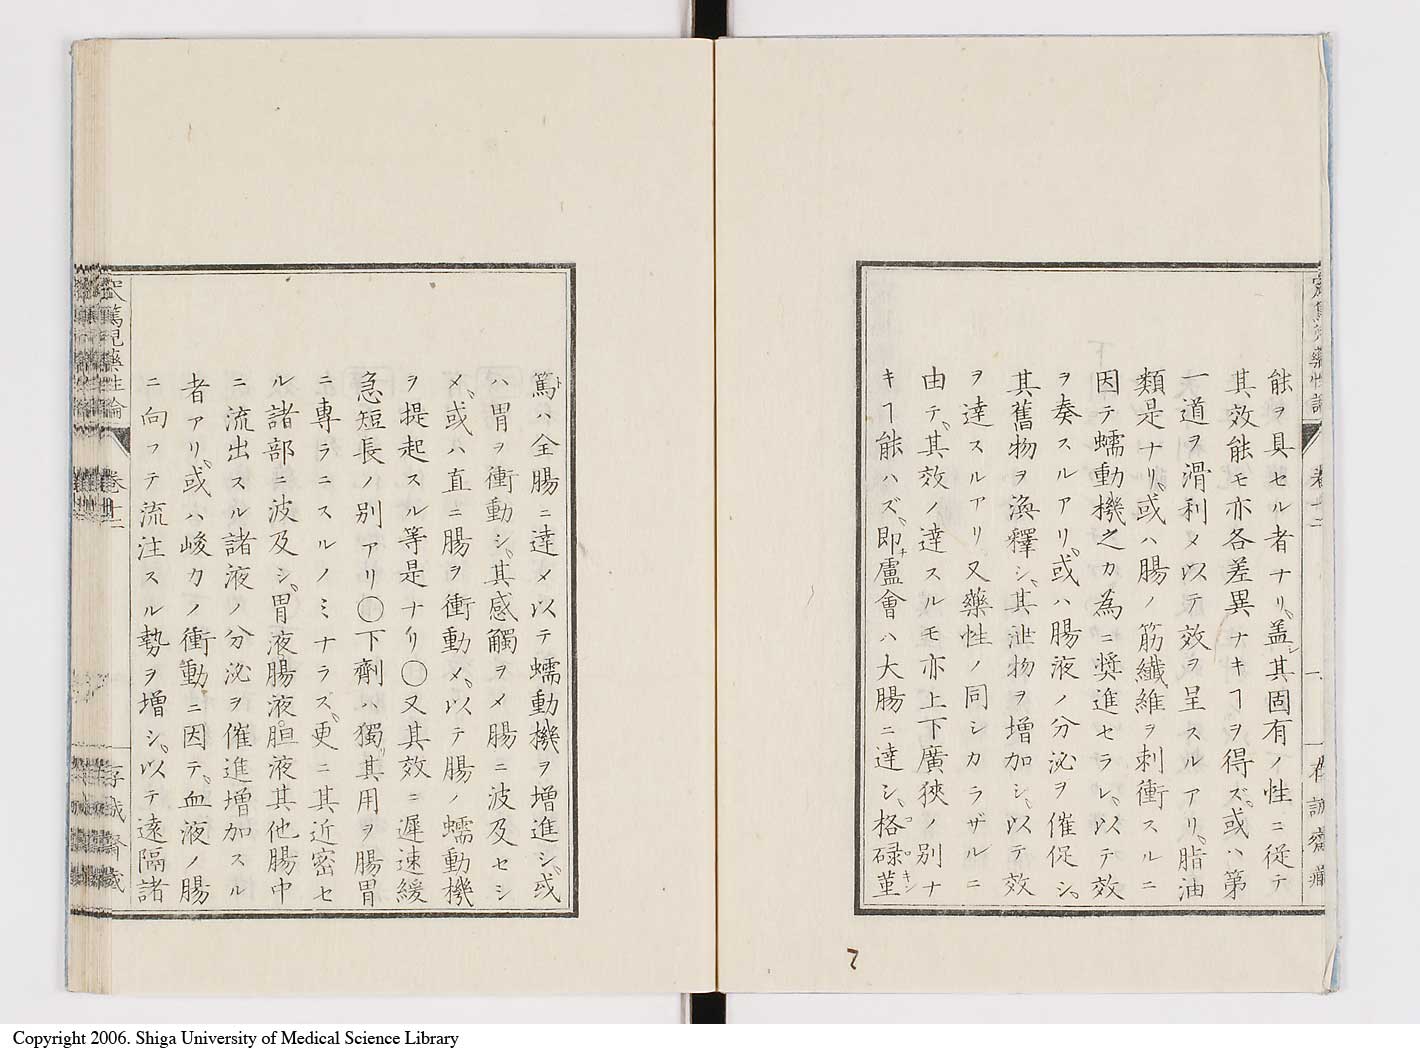 能ヲ具セル者ナリ、盖シ其固有ノ性ニ従テ
其效能モ亦各差異ナキヿヲ得ズ、或ハ第
一道ヲ滑利メ以テ效ヲ呈スルアリ、脂油
類是ナリ、或ハ腸ノ筋繊維ヲ刺衝スルニ
因テ蠕動機之カ為ニ奨進セラレ、以テ效
ヲ奏スルアリ、或ハ腸液ノ分泌ヲ催促シ、
其舊物ヲ渙釋シ、其泄物ヲ増加シ、以テ效
ヲ達スルアリ又藥性ノ同シカラザルニ
由テ、其效ノ達スルモ亦上下廣狹ノ別ナ
キヿ能ハズ、即チ盧會ハ大腸ニ達シ、格碌菫
篤ハ全腸ニ達メ以テ蠕動機ヲ増進シ、或
ハ胃ヲ衝動シ、其感觸ヲメ腸ニ波及セシ
メ、或ハ直ニ腸ヲ衝動メ、以テ腸ノ蠕動機
ヲ提起スル等是ナリ〇又其效ニ遲速緩
急短長ノ別アリ〇下劑ハ獨リ其用ヲ腸胃
ニ專ラニスルノミナラス、更ニ其近密セ
ル諸部ニ波及シ、胃液腸液胆液其他腸中
ニ流出スル諸液ノ分泌ヲ催進増加スル
者アリ、或ハ峻力ノ衝動ニ因テ、血液ノ腸
ニ向フテ流注スル勢ヲ増シ、以テ遠隔諸
篤兒藥性論
卷十二
存誠齋藏
Copyright 2006. Shiga University of Medical Science Library